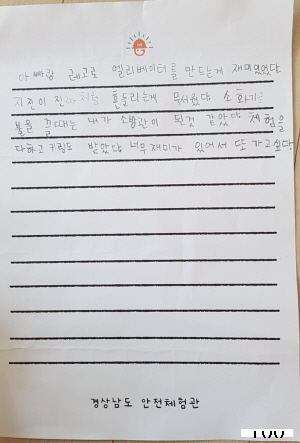 아빠랑 레고로 엘리베이터를 만드는게 재미있었다
지진이 진짜처럼 흔들리는게 무서웠다 소화기로
불을 끌때는 내가 소방관이 된것 같았다 체험을
다하고 키링도 받았다 너무 재미가 있어서 또 가고싶다
경상남도 안전체험관